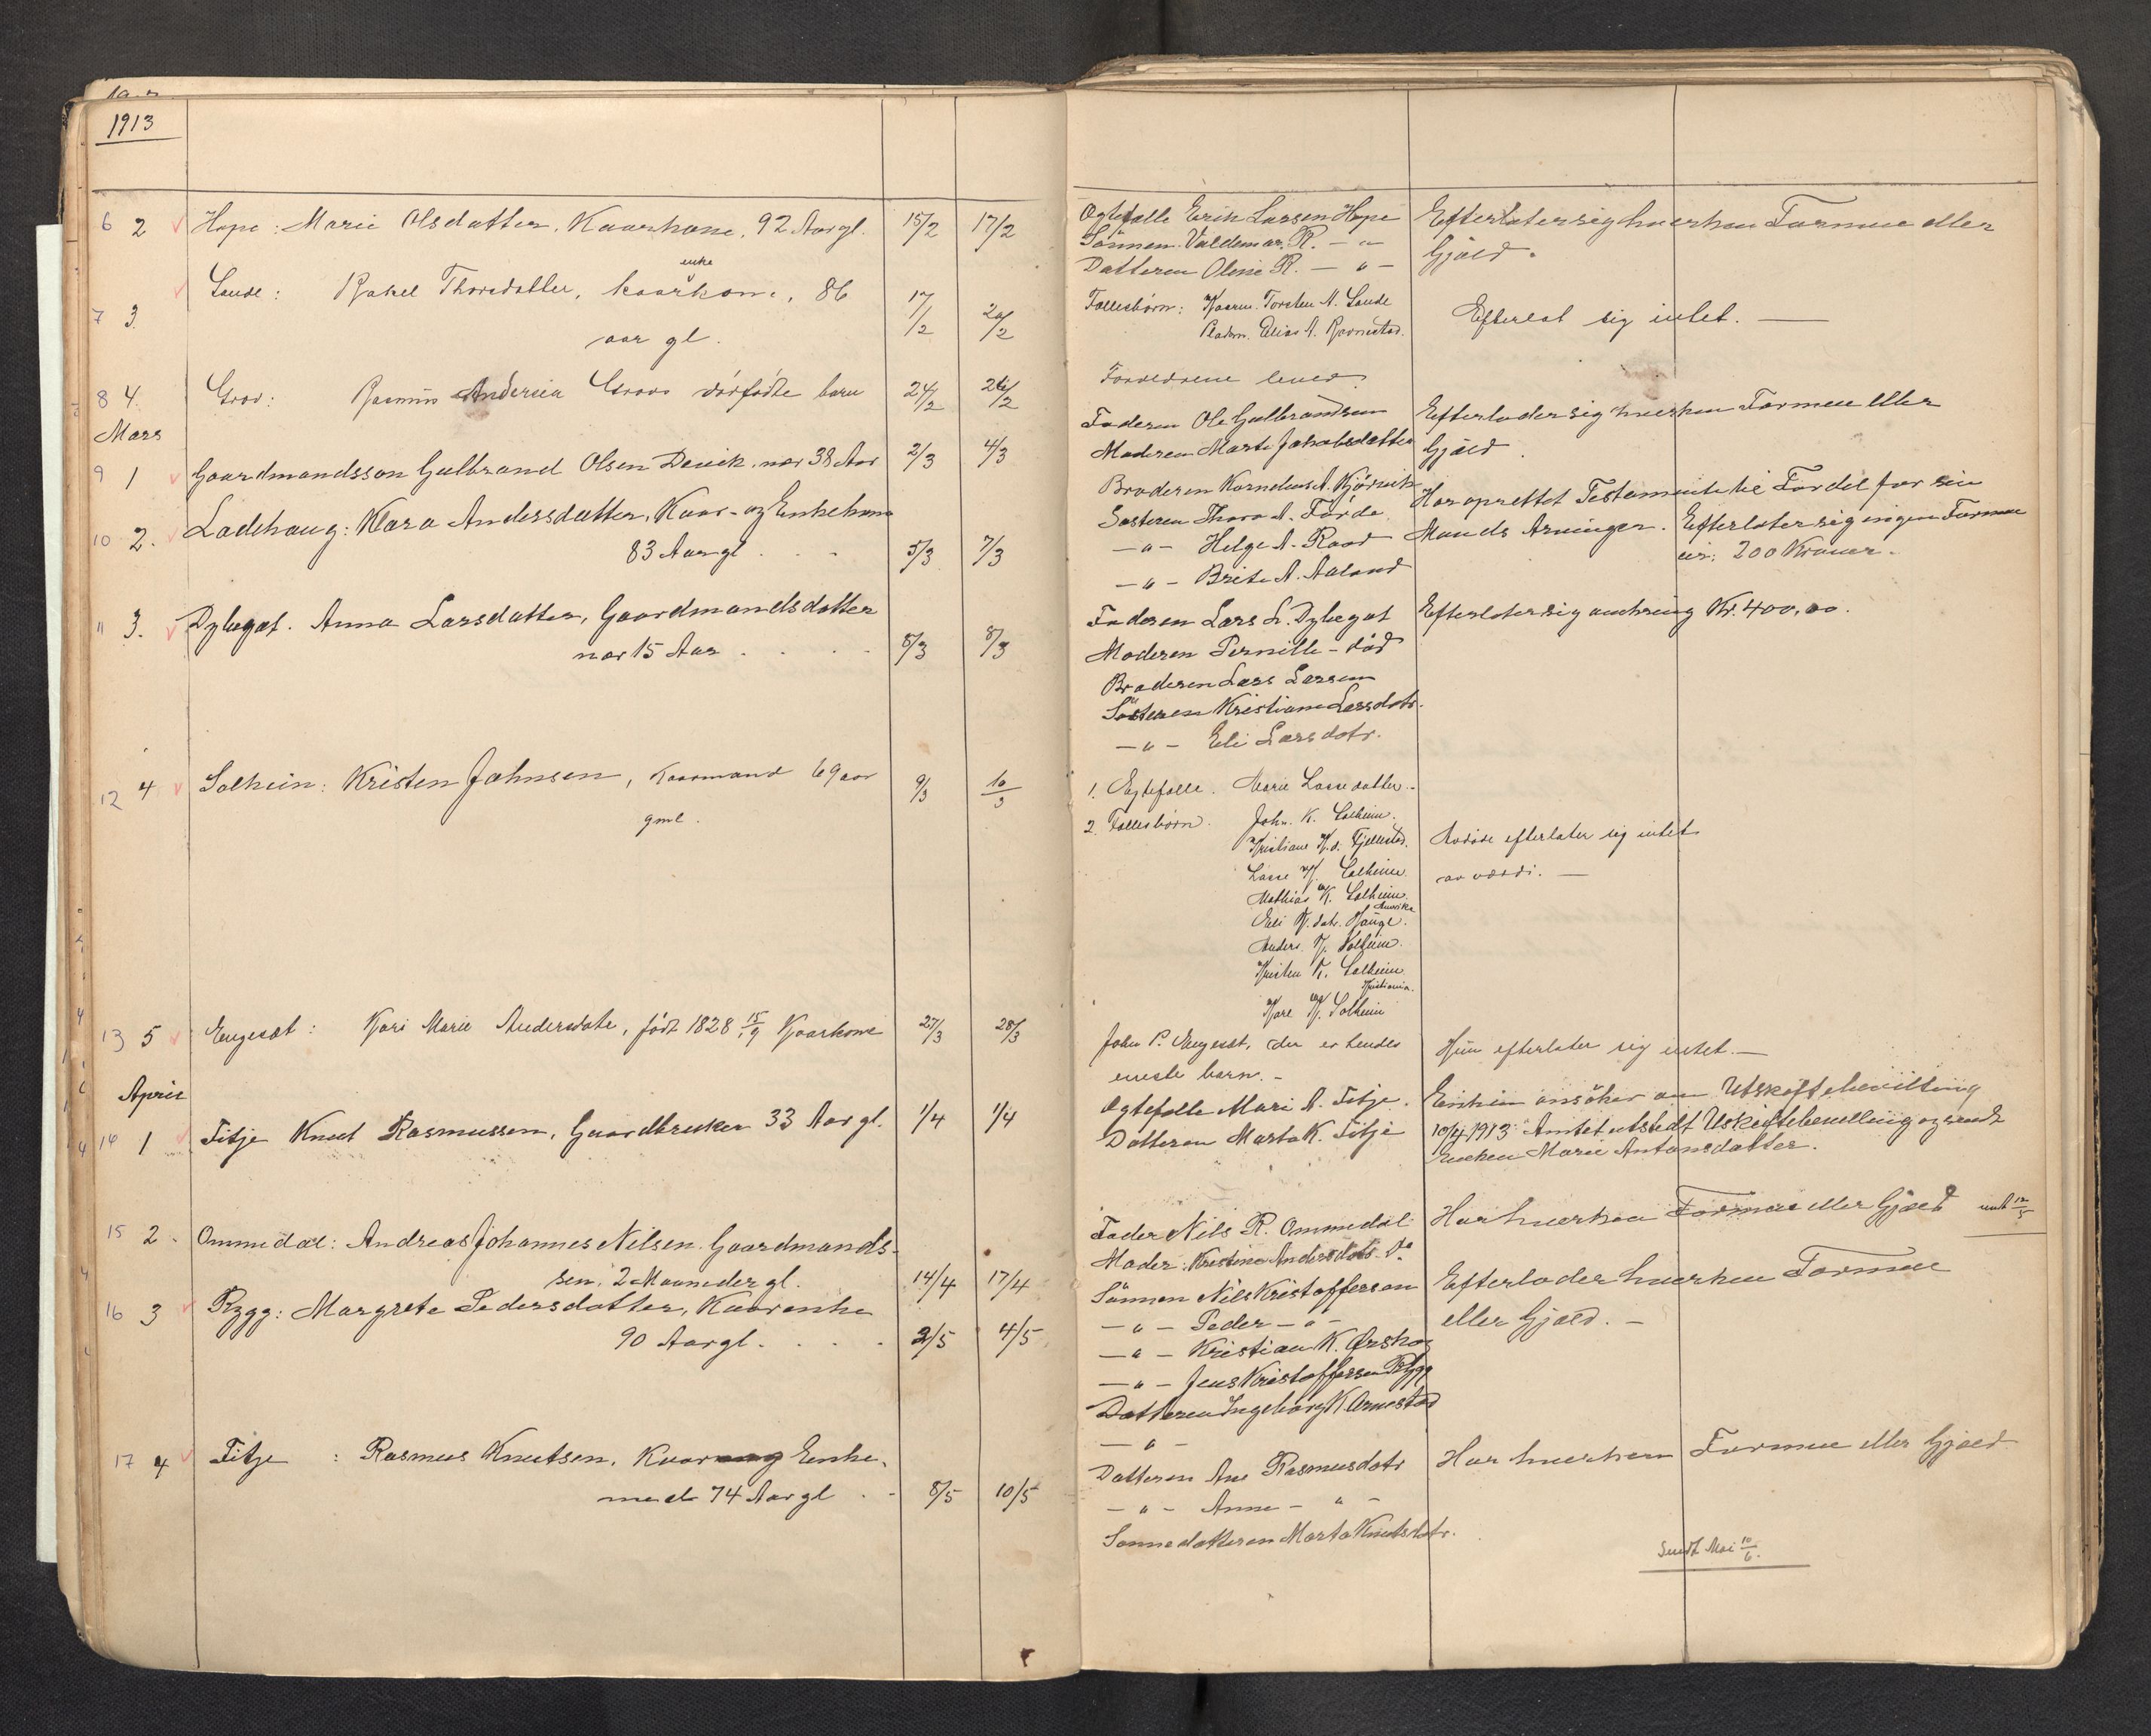 1913
6 2 Hope: Marie Olsdatter, Kaarkone, 92 Aar gl. 15/2 17/2
Ægtefælle Erik Larsen Hope
Sönnen Valdemar R. — " —
Datteren Oline R. — " —
Efterlater sig hverken Formue eller
Gjæld.
enke
7 3. Sande: Rakel Thoredatter, kaarkone, 86
aar gl. 17/2 20/2
Fællesbörn: Kaarm. Torsten A. Sande
Pladsm. Elias A. Ravnestad.
Efterlot sig intet. —
8 4. Grov: Rasmus Andersen Grovs dödfödte barn 24/2 26/2
Forældrene lever.
Mars
9 1 Gaardmandssøn Gulbrand Olsen Devick, nær 38 Aar 2/3 4/3
Faderen Ole Gulbrandsen
Moderen Marte Jakobsdatter
Efterlader sig hverken Formue eller
Gjæld.
10 2. Ladehaug: Klara Andersdatter, Kaar- og Enkekone
83 Aar gl. 5/3 7/3
Broderen Kornelius A. Kjörvik
Søsteren Thora A. Förde
— " — Helge A. Raad
— " — Brite A. Aaland
Har oprettet Testamente til Fordel for sin
Mands Arvinger. Efterlater sig ingen Formue
200 Kroner.
11 3. Dybegot. Anna Larsdatter, Gaardmandsdatter
nær 15 Aar 8/3 8/3
Faderen Lars L. Dybegot
Moderen Pernille - död
Broderen Lars Larsen
Søsteren Kristiane Larsdotr.
— " — Eli Larsdotr.
Efterlater sig omkring Kr. 400,00.
12 4 Solheim: Kristen Johnsen, Kaarmand 69 aar
gml. 9/3 10/3
1. Egtefælle. Marie Lassedatter.
2. Fællesbörn. John K. Solheim.
Kristiane K.d. Fjellestad.
Lasse K. Solheim.
Mathias K. Solheim.
Amerika
Eli K. datr. Hauge.
Anders K. Solheim.
Kristen K. Solheim.
Kristiania.
Kare K. Solheim
Avdöde efterlater sig intet
av værdi. —
13 5 Engeset: Kari Marie Andersdatr, född 1828 15/9 Kaarkone 27/3 28/3
John P. Engeset, der er hendes
eneste barn. -
Hun efterlater sig intet. —
April
14 1 Fitje Knut Rasmussen, Gaardbruker 33 Aar gl. 1/4 1/4
Ægtefælle Mari A. Fitje.
Datteren Marta K. Fitje
Enken ansöker om Utskiftebevilling
10/4 1913 Amtet utstedt Uskiftebevilling og sendt
Enken Marie Antonsdatter.
15 2. Ommedal: Andreas Johannes Nilsen. Gaardmands-
sön, 2 Maaneder gl. 14/4 17/4
Fader Nils R. Ommedal
Moder: Kristine Andersdotr. Do
Har hverken Formue eller Gjæld sendt 12/5
16 3 Rygg: Margrete Pedersdatter, Kaarenke
90 Aar gl. 2/5 4/5
Sönnen Nils Kristoffersen
— " — Peder — " —
— " — Kristian K. Ørskog
— " — Jens Kristoffersen Rygg
Datteren Ingeborg K. Arnestad
— " —
Efterlader hverken Formue
eller Gjæld. —
17 4 Fitje: Rasmus Knutsen, Kaar- og Enke-
mand 74 Aar gl 8/5 10/5
Datteren Ane Rasmusdotr
— " — Anne — " —
Sönnedatteren Marta Knutsdotr.
Har hverken Formue eller Gjæld
Sendt Mai 10/6.